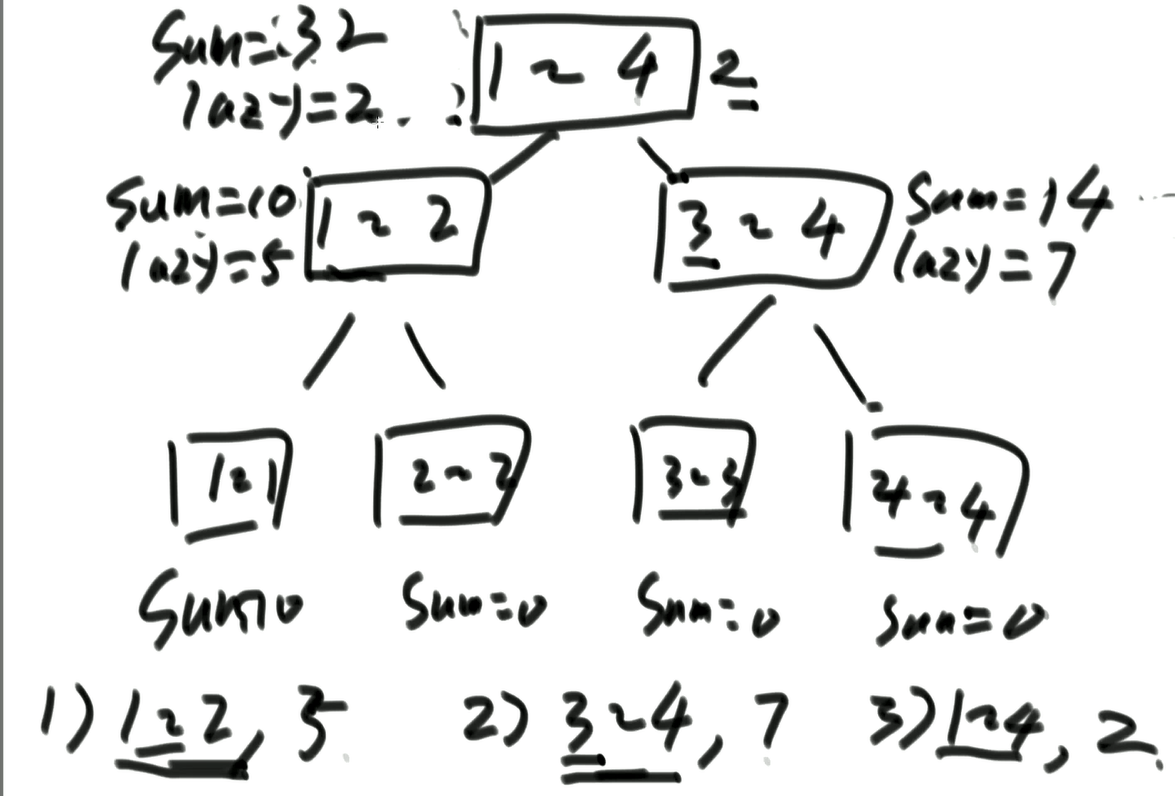 Sum=32
lazy=2
1~4 2
Sum=10
lazy=5
1~2
3~4
Sum=14
lazy=7
1~1
2~2
3~3
4~4
Sum=0
Sum=0
Sum=0
Sum=0
1) 1~2, 5
2) 3~4, 7
3) 1~4, 2